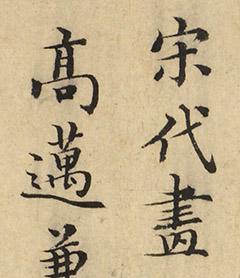 宋代畫
高邁兼